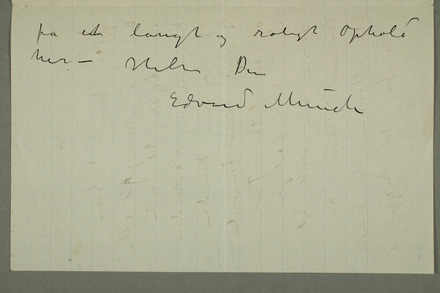 på et langt og roligt Ophold
her – Hilsen Din
Edvard Munch